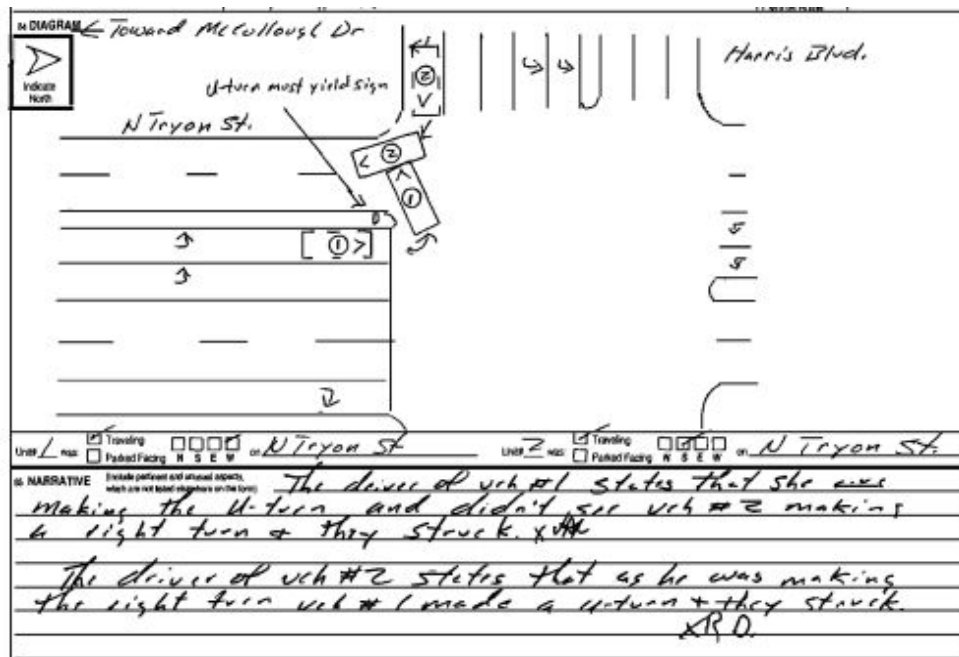 84 DIAGRAM ← Toward McCullough Dr
Indicate
North
U-turn must yield sign
N Tryon St.
Harris Blvd.
2
2
1
1
Unit# 1 was: Traveling Parked Facing N S E W on N Tryon St
Unit# 2 was: Traveling Parked Facing N S E W on N Tryon St.
85 NARRATIVE (Include pertinent and unusual aspects, which are not listed elsewhere on the form) The driver of veh #1 states that she was
making the U-turn and didn't see veh #2 making
a right turn + they struck.
The driver of veh #2 states that as he was making
the right turn veh #1 made a u-turn + they struck.
XR D.